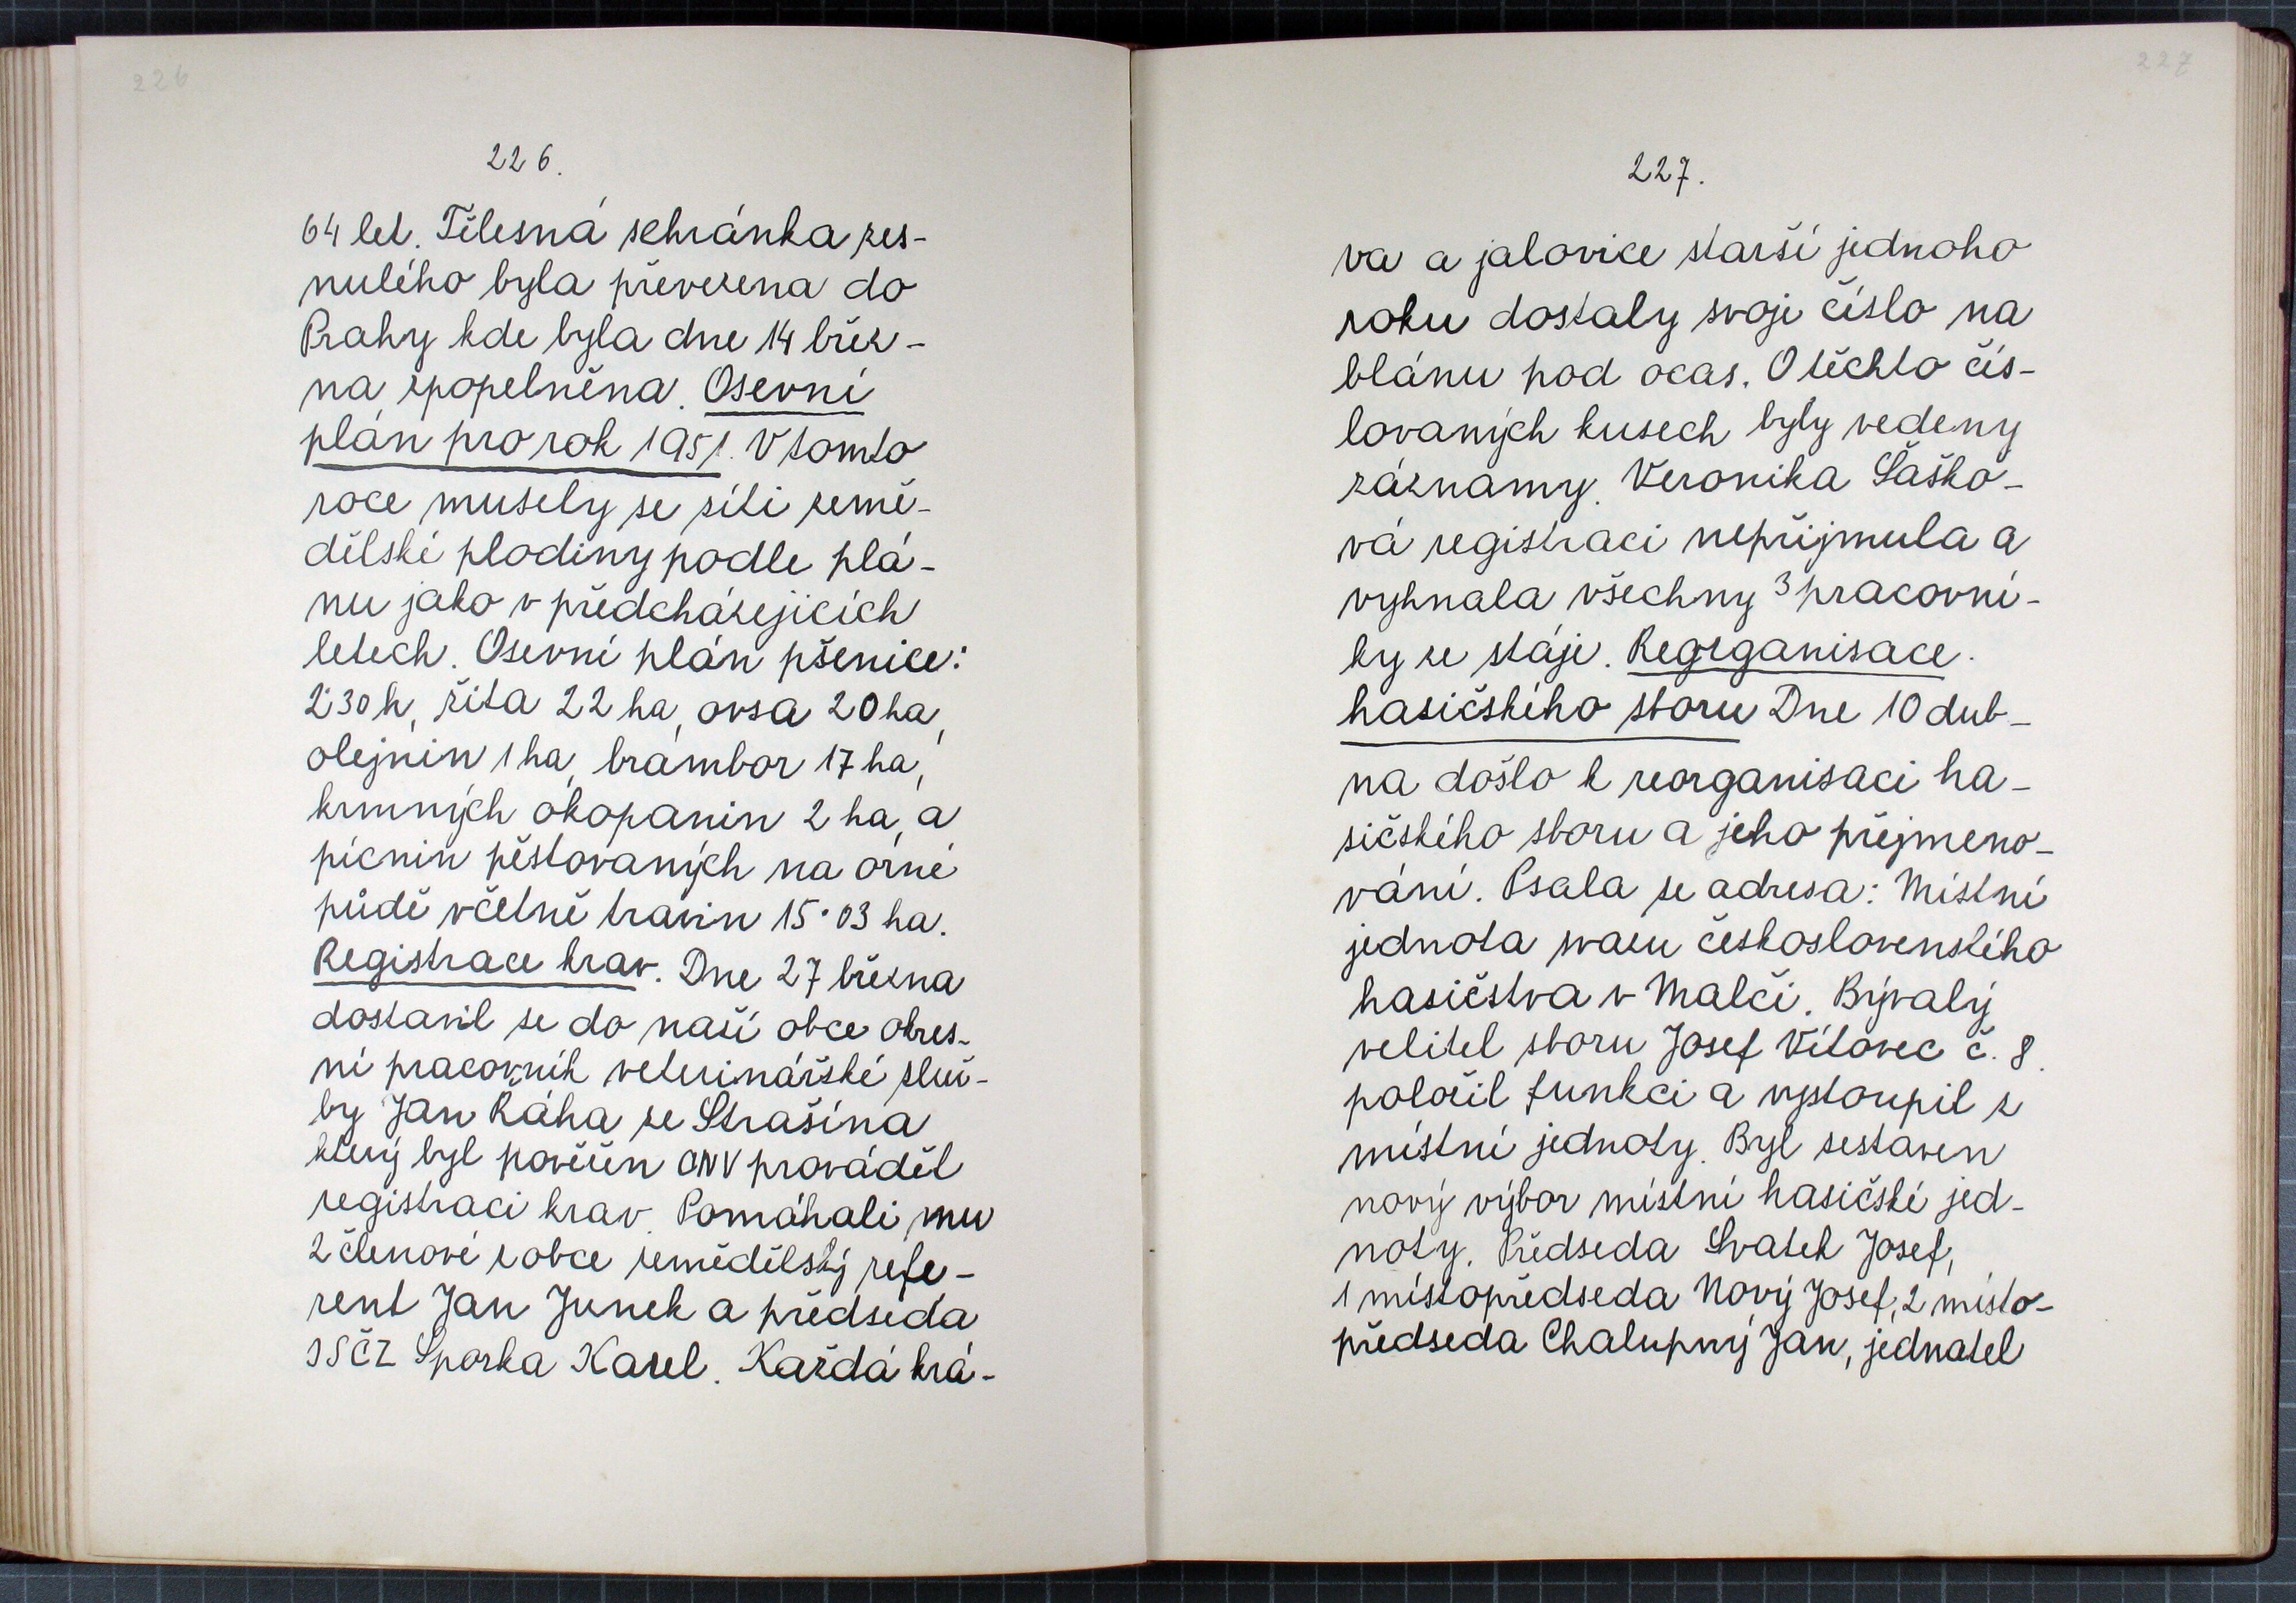 226
226.
64 let. Tělesná schránka zes-
nulého byla převezena do
Prahy kde byla dne 14 břez-
na zpopelněna. Osevní
plán pro rok 1951. V tomto
roce musely se síti země-
dělské plodiny podle plá-
nu jako v předcházejících
letech. Osevní plán pšenice:
2·30 h, žita 22 ha, ovsa 20 ha,
olejnin 1 ha, brambor 17 ha,
krmných okopanin 2 ha, a
pícnin pěstovaných na orné
půdě včetně travin 15·03 ha.
Registrace krav. Dne 27 března
dostavil se do naší obce okres-
ní pracovník veterinářské služ-
by Jan Ráha ze Strašína
který byl pověřen ONV provádět
registraci krav. Pomáhali mu
2 členové z obce zemědělský refe-
rent Jan Junek a předseda
JSČZ Sporka Karel. Každá krá-
227
227.
va a jalovice starší jednoho
roku dostaly svoje číslo na
blánu pod ocas. O těchto čís-
lovaných kusech byly vedeny
záznamy. Veronika Šaško-
vá registraci nepřijmula a
vyhnala všechny 3 pracovní-
ky ze stáje. Regrganisace.
hasičského sboru Dne 10 dub-
na došlo k reorganisaci ha-
sičského sboru a jeho přejmeno-
vání. Psala se adresa: Místní
jednota svazu československého
hasičstva v Malči. Bývalý
velitel sboru Josef Vítovec č. 8.
položil funkci a vystoupil z
místní jednoty. Byl sestaven
nový výbor místní hasičské jed-
noty. Předseda Svatek Josef,
1 místopředseda Nový Josef, 2 místo-
předseda Chalupný Jan, jednatel